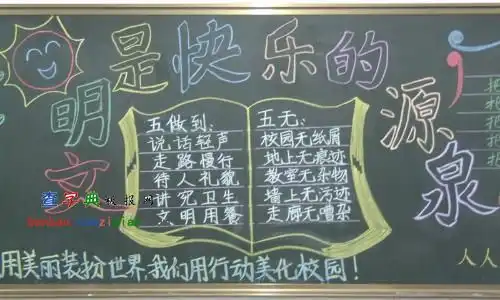 文明是快乐的源泉
五做到:
说话轻声
走路慢行
待人礼貌
讲究卫生
文明用餐
五无:
校园无纸屑
地上无痕迹
教室无杂物
墙上无污迹
走廊无嘈杂
查字典板报网
用美丽装扮世界,我们用行动美化校园!
人人